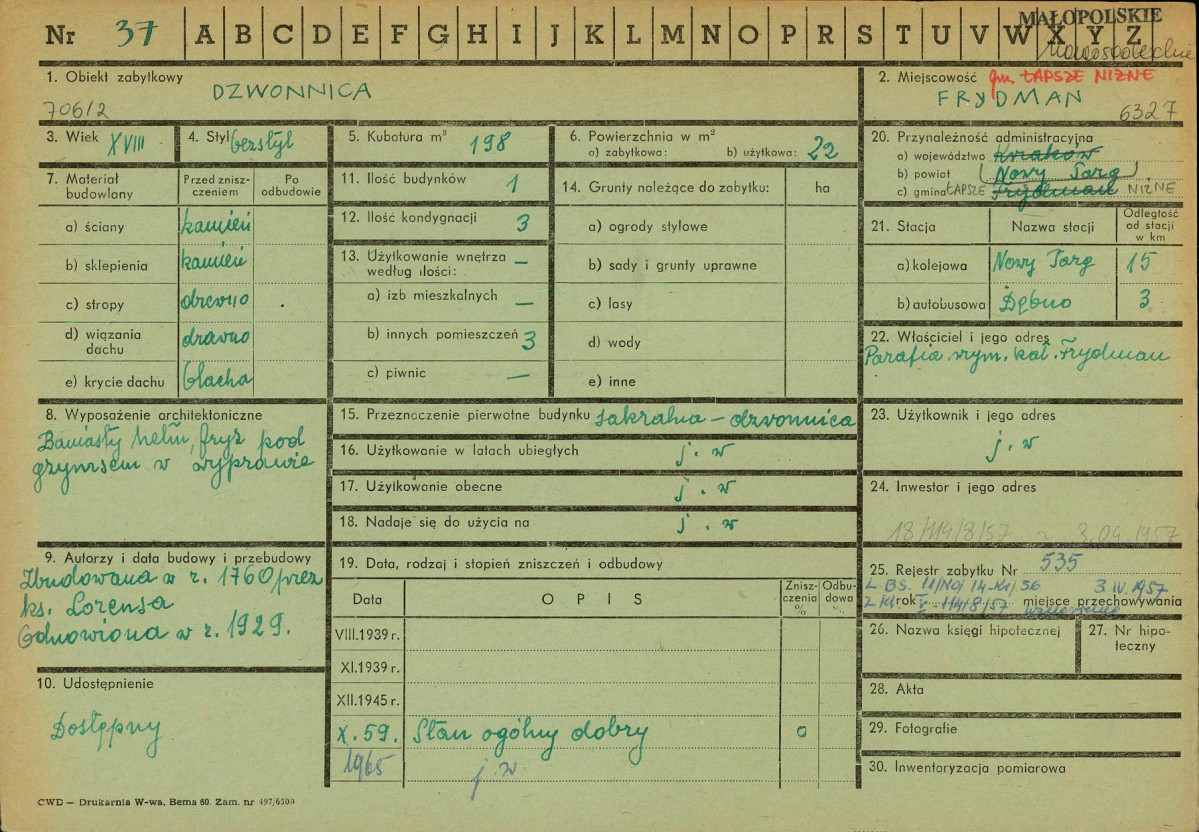 MAŁOPOLSKIE
Nr 37 A B C D E F G H I J K L M N O P R S T U V W X Y Z
1. Obiekt zabytkowy
DZWONNICA
706/2
2. Miejscowość gm ŁAPSZE NIŻNE
FRYDMAN
6327
3. Wiek XVIII
4. Styl bezstyl
5. Kubatura m³ 198
6. Powierzchnia w m²
a) zabytkowa: b) użytkowa: 22
7. Materiał budowlany
Przed zniszczeniem
Po odbudowie
a) ściany kamień
b) sklepienia kamień
c) stropy drewno
d) wiązania dachu drewno
e) krycie dachu blacha
8. Wyposażenie architektoniczne
Baniasty hełm, fryz pod
gzymsem w wyprawie
9. Autorzy i data budowy i przebudowy
Zbudowana w r. 1760 przez
ks. Lorensa
Odnowiona w r. 1929.
10. Udostępnienie
Dostępny
11. Ilość budynków 1
12. Ilość kondygnacji 3
13. Użytkowanie wnętrza —
według ilości:
a) izb mieszkalnych —
b) innych pomieszczeń 3
c) piwnic —
14. Grunty należące do zabytku: ha
a) ogrody stylowe
b) sady i grunty uprawne
c) lasy
d) wody
e) inne
15. Przeznaczenie pierwotne budynku sakralna – dzwonnica
16. Użytkowanie w latach ubiegłych j. w
17. Użytkowanie obecne j. w
18. Nadaje się do użycia na j. w
19. Data, rodzaj i stopień zniszczeń i odbudowy
Data OPIS Zniszczenia % Odbudowa %
VIII.1939 r.
XI.1939 r.
XII.1945 r.
X.59. Stan ogólny dobry 0
1965 j.w
20. Przynależność administracyjna
a) województwo Kraków
b) powiat Nowy Targ
c) gmina ŁAPSZE Frydman NIŻNE
21. Stacja Nazwa stacji Odległość od stacji w km
a) kolejowa Nowy Targ 15
b) autobusowa Dębno 3
22. Właściciel i jego adres
Parafia rzym. kat. Frydman
23. Użytkownik i jego adres
j. w
24. Inwestor i jego adres
18/114/8/57 z 3.04.1957
25. Rejestr zabytku Nr 535
3 IV. 1957
rok 114/8/57 miejsce przechowywania
26. Nazwa księgi hipotecznej
27. Nr hipoteczny
28. Akta
29. Fotografie
30. Inwentaryzacja pomiarowa
CWD — Drukarnia W-wa, Bema 60. Zam. nr 497/6500